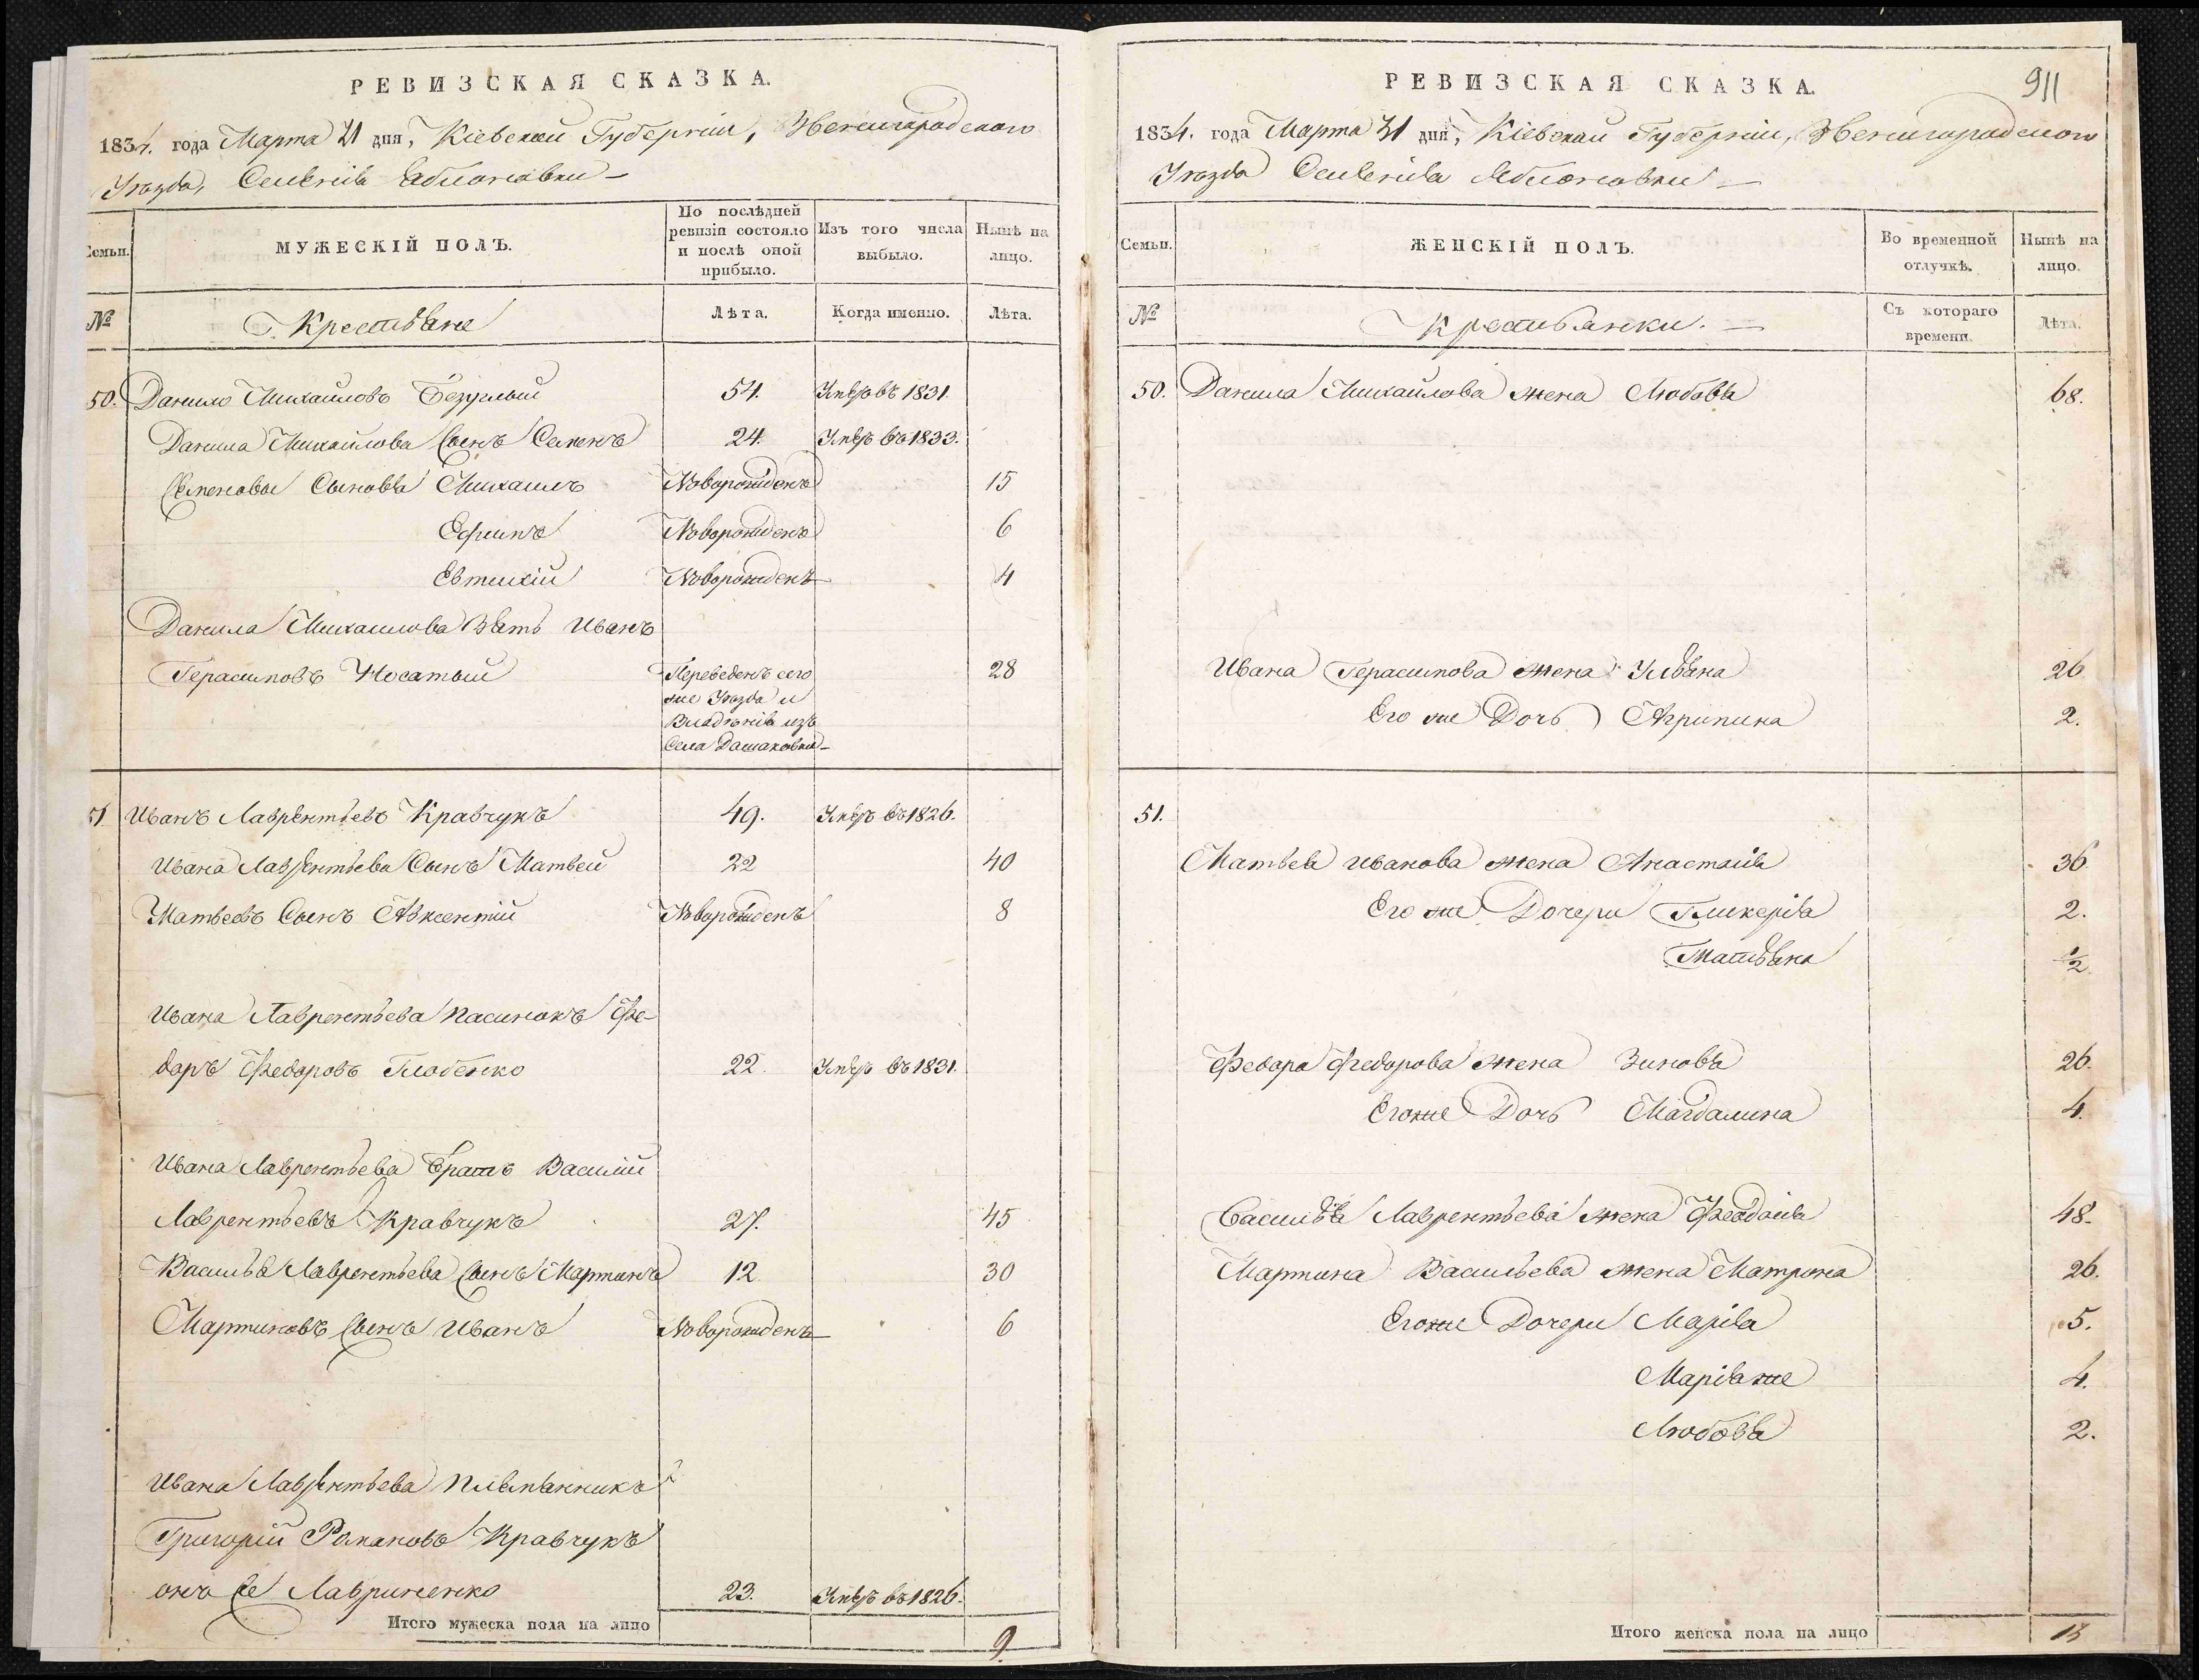 РЕВИЗСКАЯ СКАЗКА.
1834. года Марта 21 дня, Кіевской Губерніи, Звенигородского
Уѣзда, Селенія Яблоновки
Семьи.
МУЖЕСКІЙ ПОЛЪ.
По послѣдней ревизіи состояло и послѣ оной прибыло.
Изъ того числа выбыло.
Нынѣ на лицо.
№
Крестьяне
Лѣта.
Когда именно.
Лѣта.
50. Данило Михайловъ Безуглый 54. Умеръ въ 1831.
Данила Михайлова Сынъ Семенъ 24. Умеръ въ 1833.
Семеновы Сыновья Михаилъ Новорожденъ 15
Ефимъ Новорожденъ 6
Евтихій Новорожденъ 4
Данила Михаилова Зять Иванъ
Герасимовъ Носатый Переведенъ сего 28
же Уѣзда и
Владѣнія изъ
Села
51. Иванъ Лаврентьевъ Кравчукъ 49. Умеръ въ 1826.
Ивана Лаврентьева Сынъ Матвей 22 40
Матвеевъ Сынъ Авксентій Новорожденъ 8
Ивана Лаврентьева пасинокъ Фе-
доръ Федоровъ Глобенко 22. Умеръ въ 1831.
Ивана Лаврентьева Братъ Василій
Лаврентьевъ Кравчукъ 27. 45
Василья Лаврентьева Сынъ Мартинъ 12 30
Мартиновъ Сынъ Иванъ Новорожденъ 6
Ивана Лаврентьева племянникъ
Григорій Романовъ Кравчукъ
онъ же Лавриненко 23. Умеръ въ 1826.
Итого мужеска пола на лицо 9.
РЕВИЗСКАЯ СКАЗКА.
911
1834. года Марта 21 дня, Кіевской Губерніи, Звенигородского
Уѣзда Селенія Яблоновки
Семьи.
ЖЕНСКІЙ ПОЛЪ.
Во временной отлучкѣ.
Нынѣ на лицо.
№
Крестьянки.
Съ котораго времени.
Лѣта.
50. Данила Михайлова жена Любовь 68.
Ивана Герасимова жена Ульяна 26
Его же Дочь Агрипина 2.
51.
Матвея Иванова жена Анастасія 36
Его же Дочери Гликерія 2.
Татьяна 1/2
Федора Федорова жена Зиновья 26.
Его же Дочь Магдалина 4.
Василья Лаврентьева жена Феодосія 48.
Мартина Васильева жена Матрона 26.
Его же Дочери Марія 5.
Марія же 4.
Любовь 2.
Итого женска пола на лицо 13